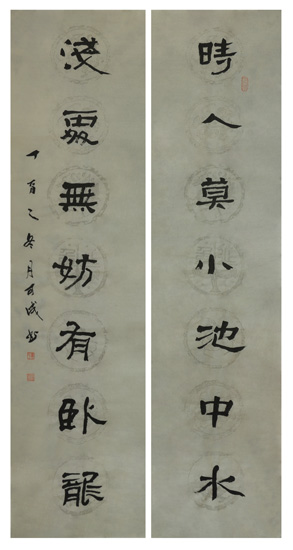 時人莫小池中水
淺處無妨有卧龍
丁酉之冬月